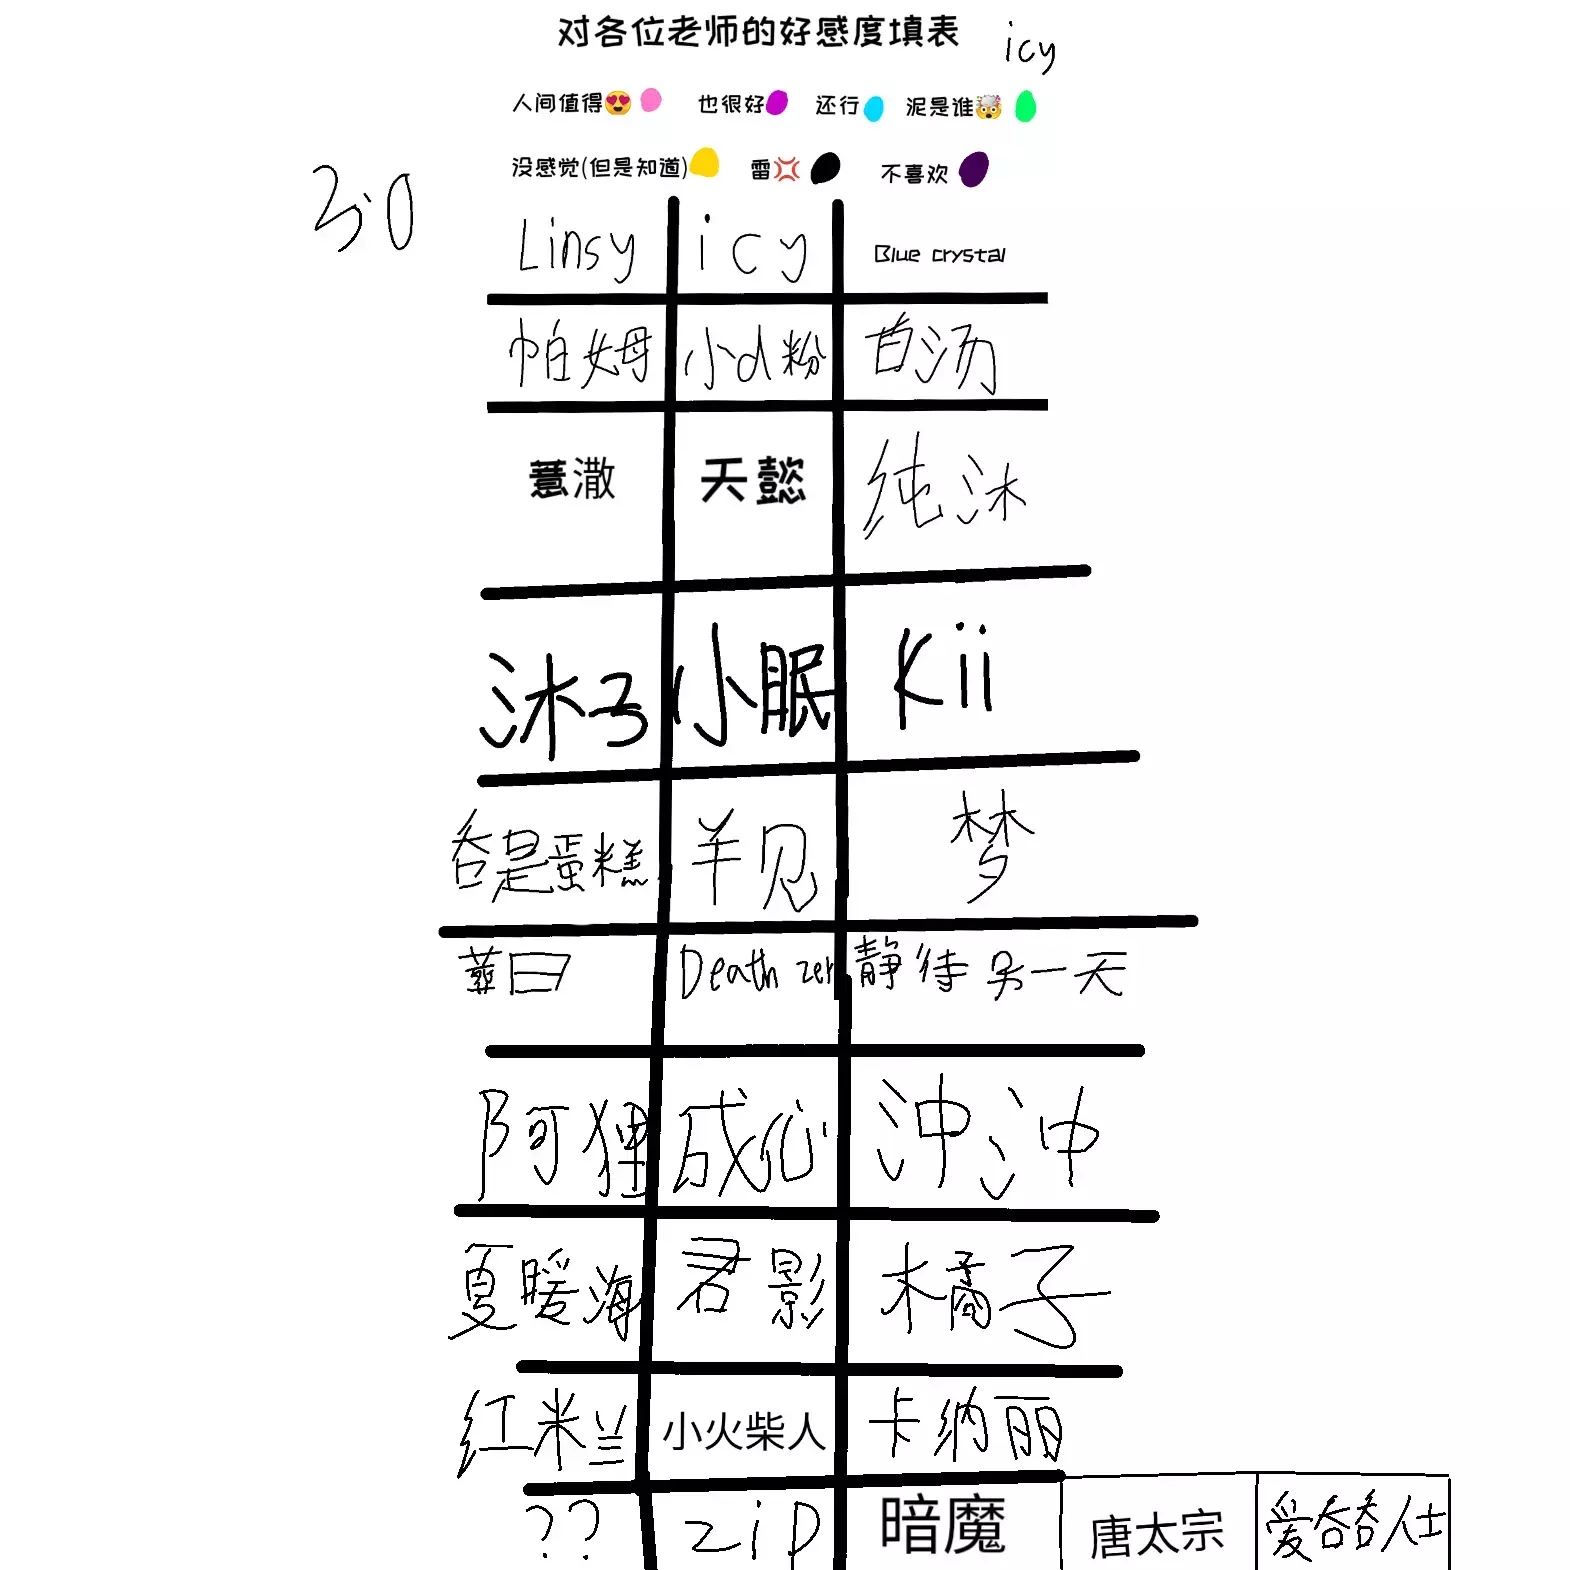 对各位老师的好感度填表 icy
人间值得😍 也很好 还行 泥是谁🤯
没感觉(但是知道) 雷💢 不喜欢
Linsy icy Blue crystal
帕姆 小d粉 苩汤
薏潵 天懿 纯沐
沐子 小眠 Kii
呑是蛋糕 羊见 梦
蕣曰 Death zer 静待另一天
阿狸 成心 沖沖
夏暖海 君影 橘子
红米兰 小火柴人 卡纳丽
?? zip 暗魔 唐太宗 爱呑呑人士